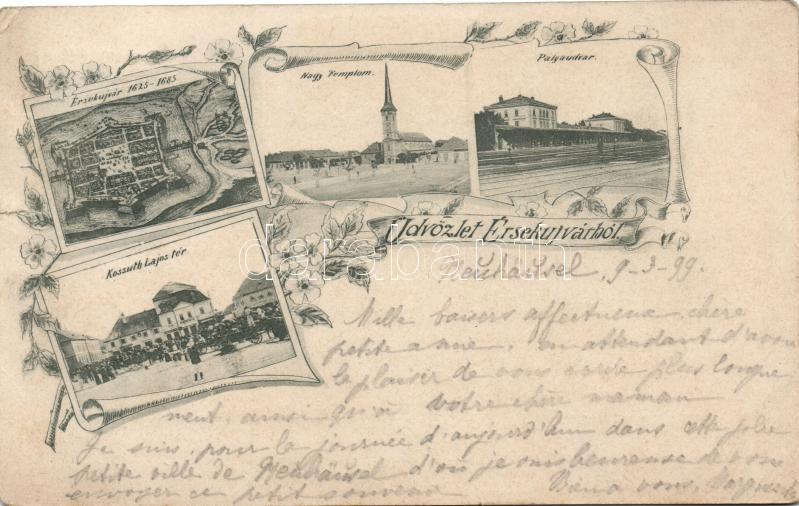 Érsekujvár 1625-1685
Nagy Templom.
Pályaudvar.
Kossuth Lajos tér
Üdvözlet Érsekujvárból.
darabanth
Neuhäusel, 9-3-99.
Mille baisers affectueux, chère
petite amie, en attendant d'avoir
le plaisir de vous écrire plus longue
ment, ainsi qu'à votre chère maman
Je suis, pour la journée d'aujourd'hui dans cette jolie
petite ville de Neuhäusel d'où je suis heureuse de vous
envoyer ce petit souvenir Bien à vous,